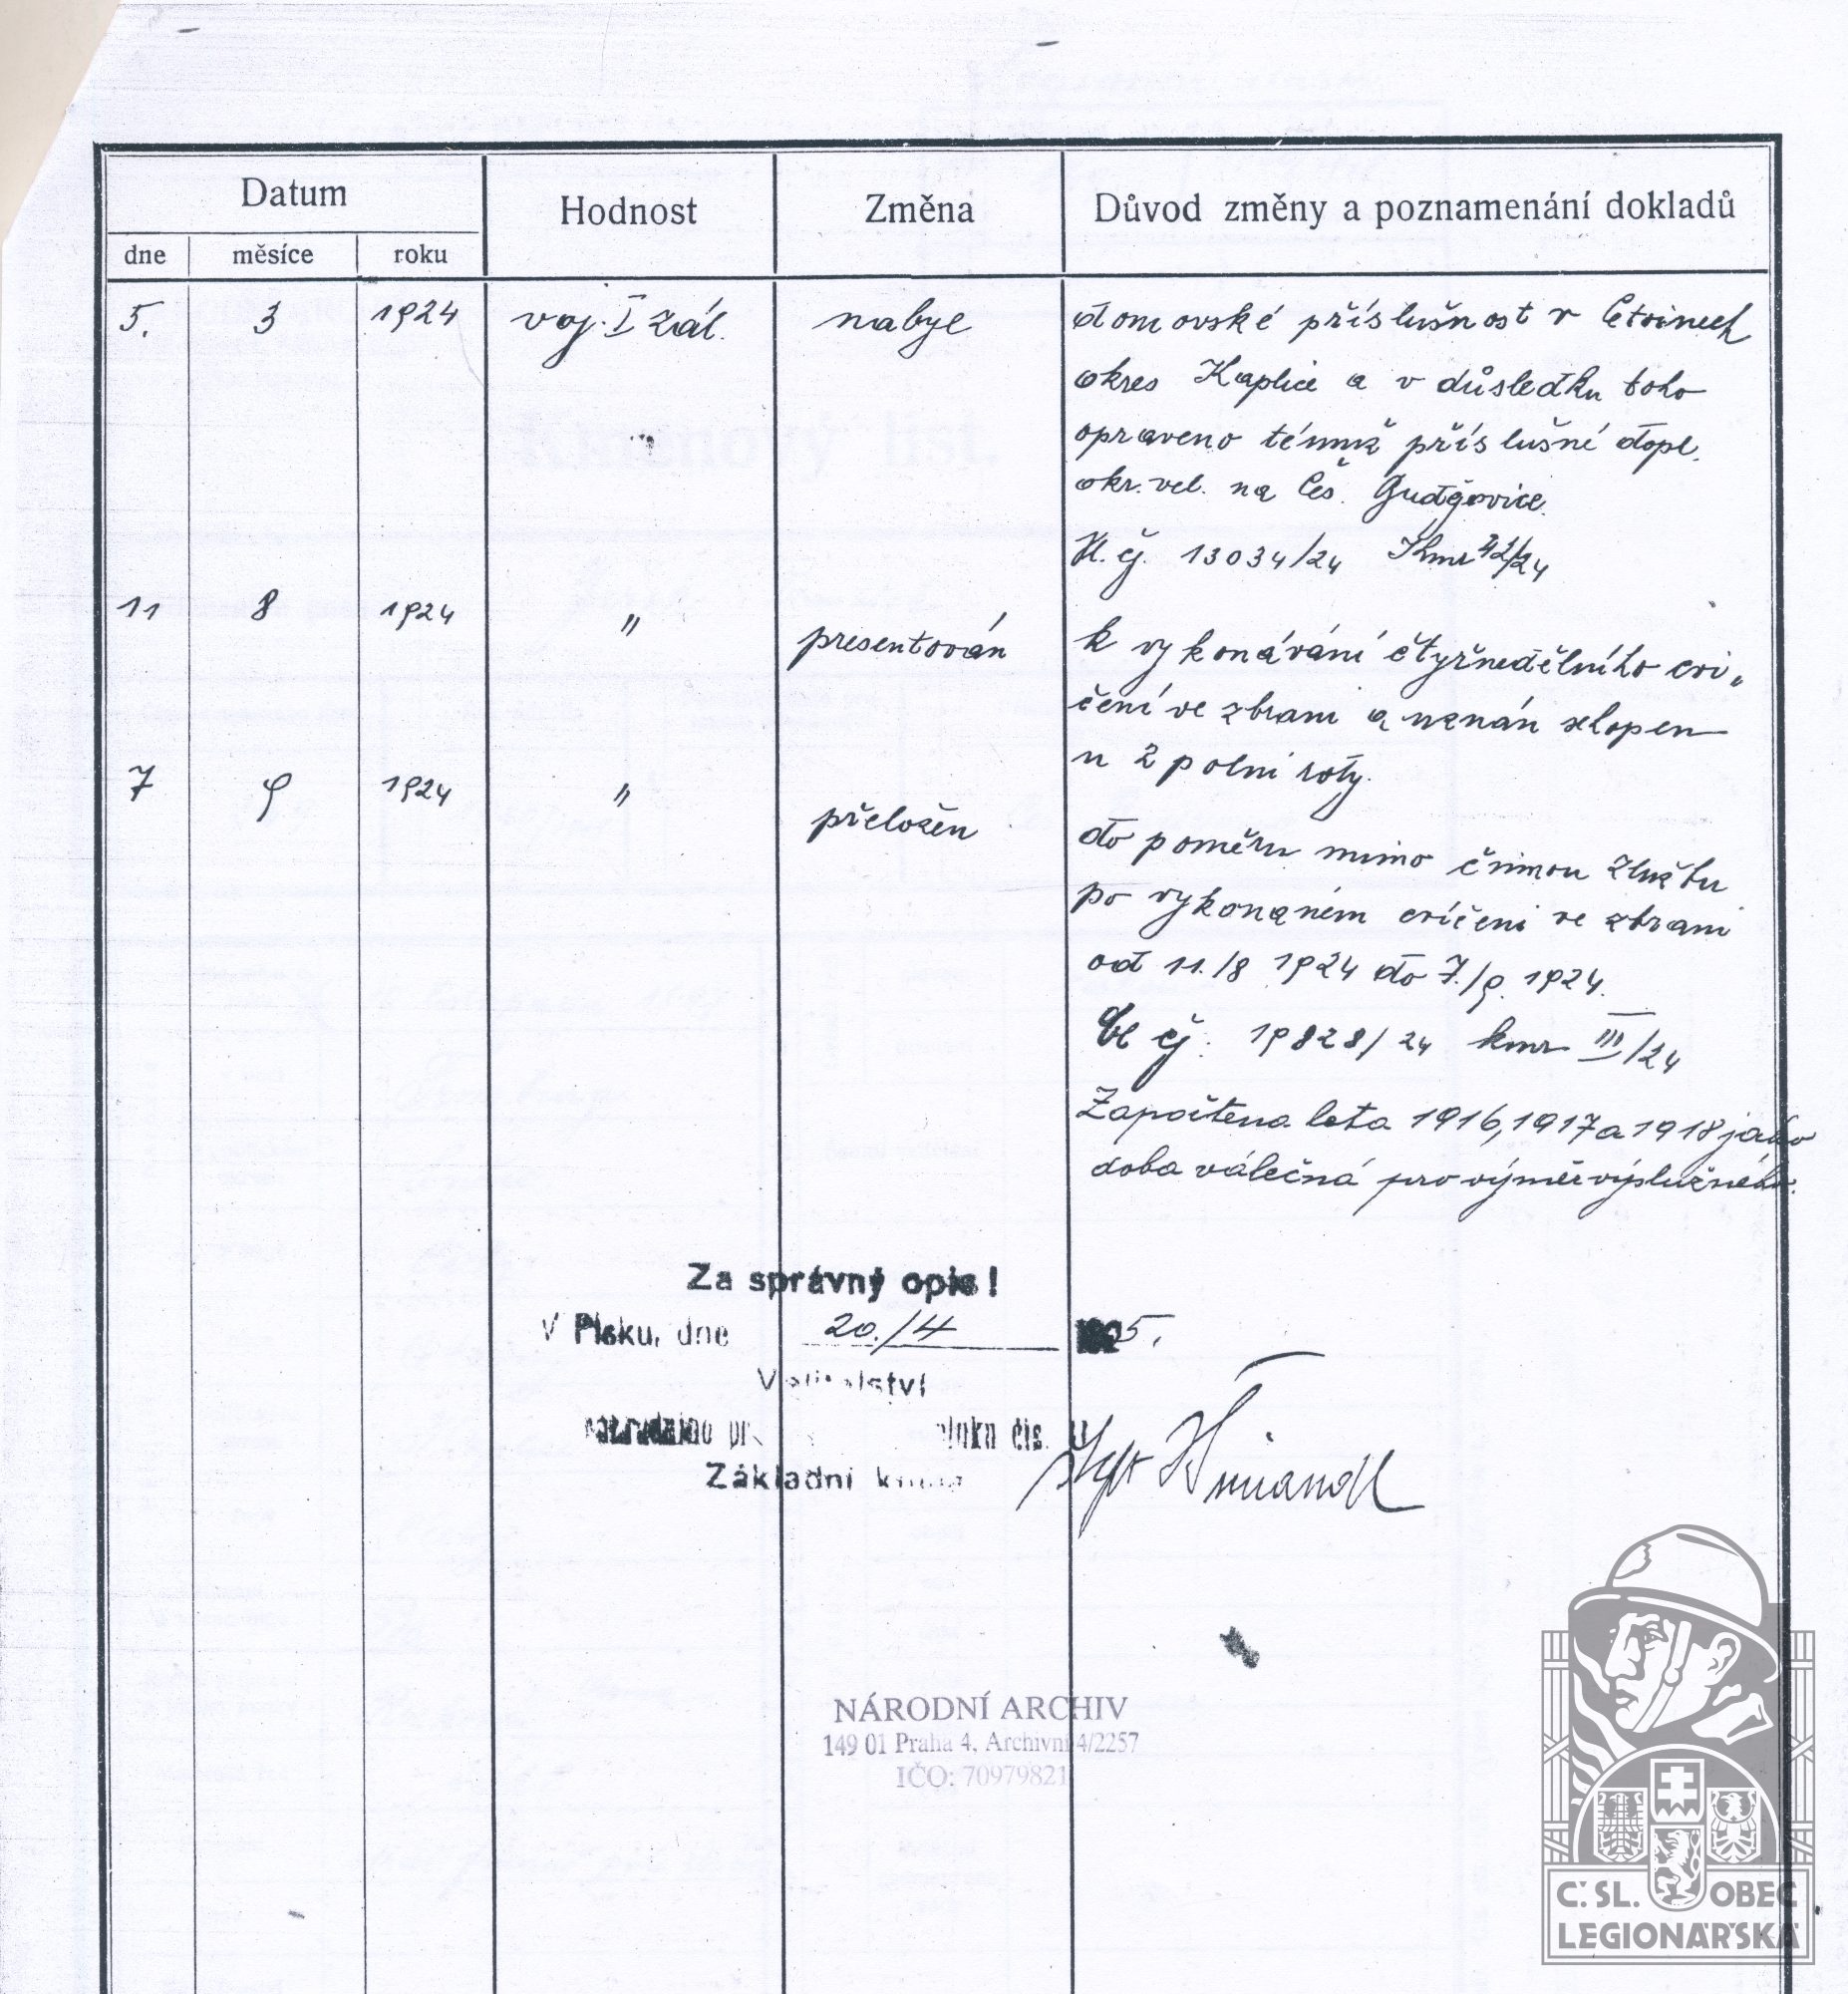 Datum
Hodnost
Změna
Důvod změny a poznamenání dokladů
dne
měsíce
roku
5. 3 1924 voj. I zál. nabyl domovské příslušnost v
okres Kaplice a v důsledku toho
opraveno témuž příslušné dopl.
okr. vel. na Čes. Budějovice.
č.j. 13034/24
11 8 1924 " presentován k vykonávání čtyřnedělního cvi„
čení ve zbrani a uznán schopen
u 2 polní roty.
7 9 1924 " přeložen do poměru mimo činnou službu
po vykonaném cvičení ve zbrani
od 11./8 1924 do 7./9. 1924.
čj. 19828/24 kmr III/24
Započtena leta 1916, 1917 a 1918 jako
doba válečná pro výměr výslužného.
Za správný opis!
V Písku, dne 20./4 5.
Velitelství
čís.
Základní kniha
NÁRODNÍ ARCHIV
149 01 Praha 4, Archivní 4/2257
IČO: 70979821
Č. SL. OBEC
LEGIONÁŘSKÁ